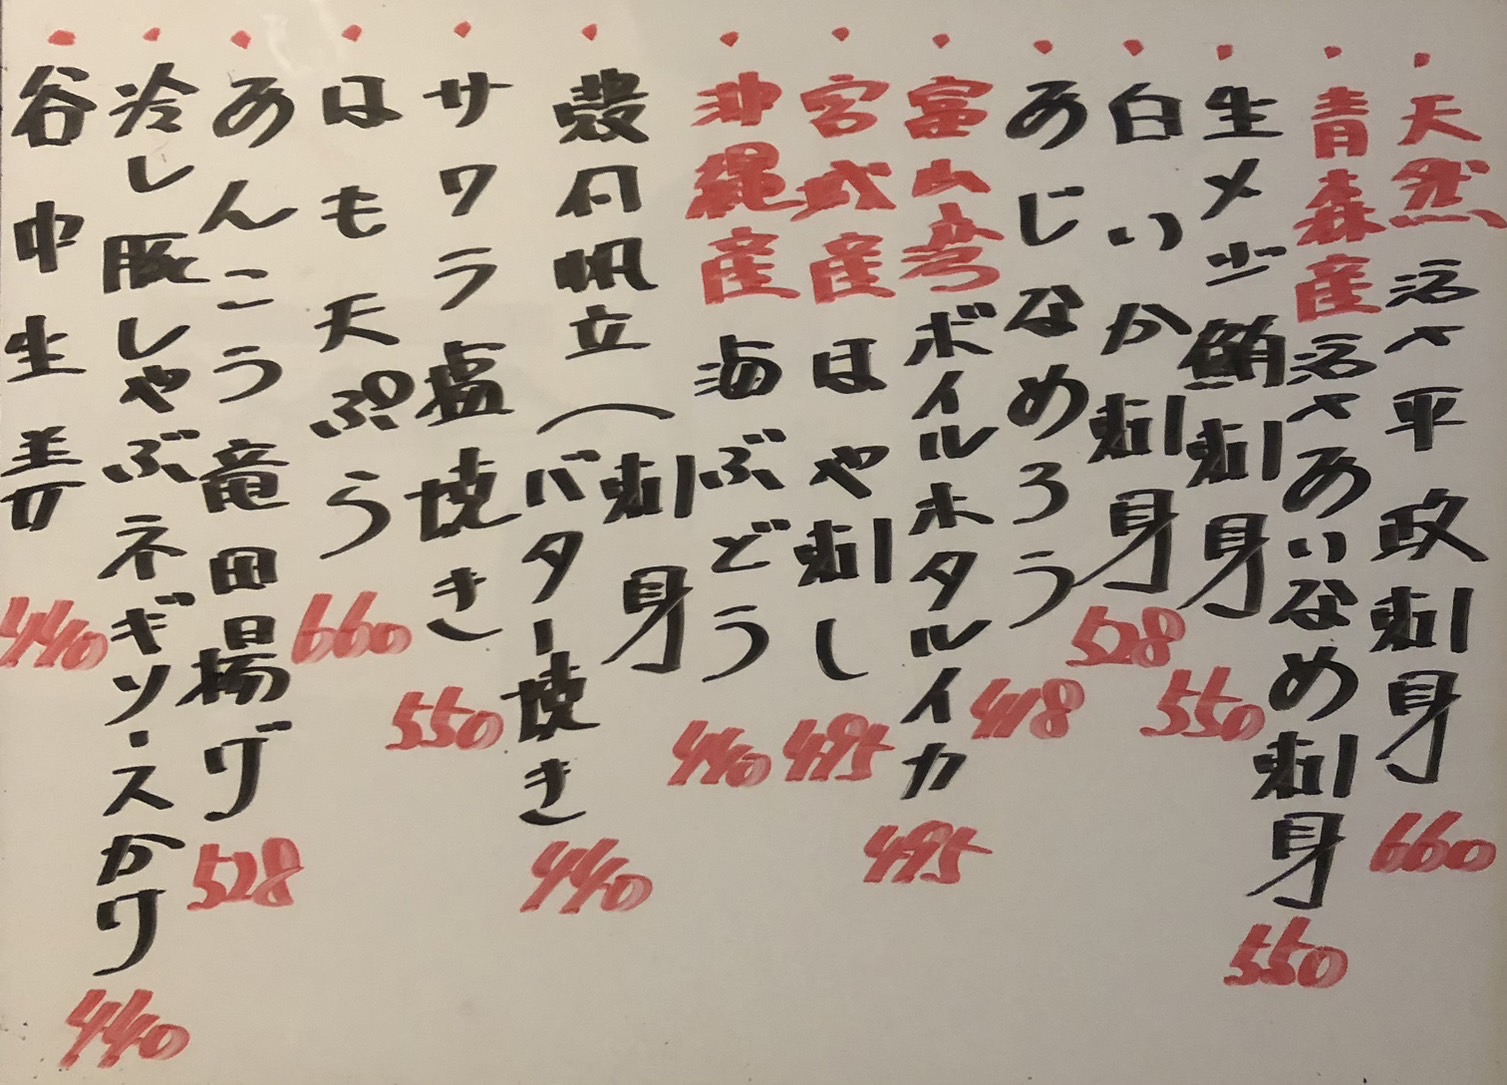 ・天然 活〆平政刺身 660
・青森産 活〆あいなめ刺身 550
・生メジ鮪刺身 550
・白いか刺身 528
・あじなめろう 418
・富山産ボイルホタルイカ 495
・宮城産 ほや刺し 495
・沖縄産 海ぶどう 440
・殻付帆立(刺身 バター焼き 440
・サワラ塩焼き 550
・はも天ぷら 660
・あんこう竜田揚げ 528
・冷し豚しゃぶネギソースかけ 440
・谷中生姜 440